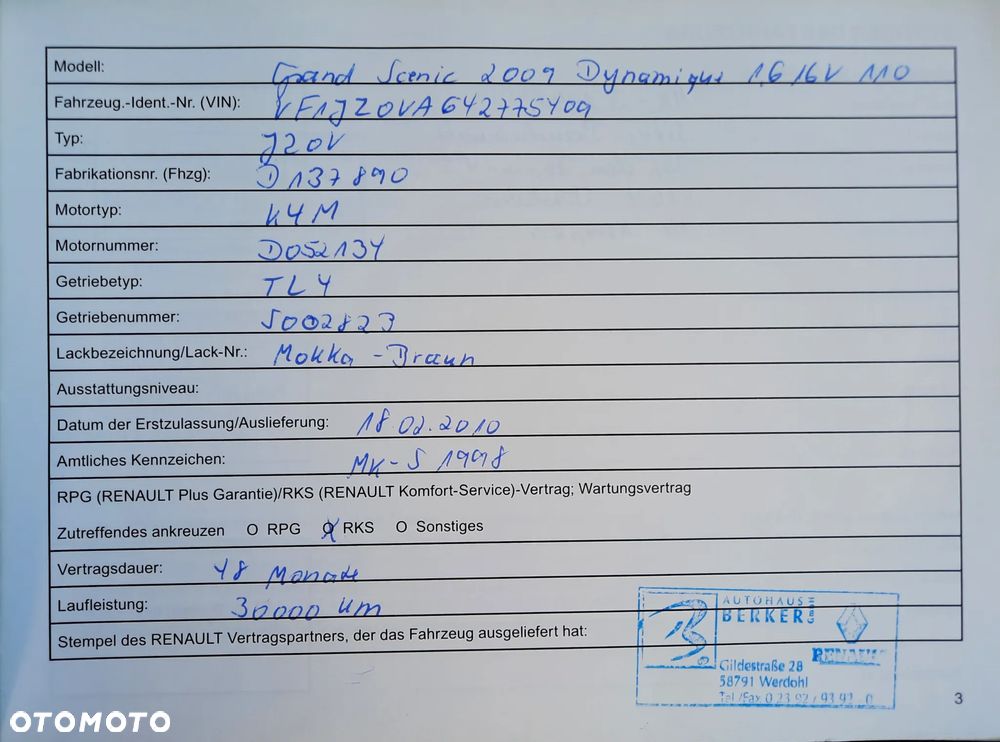 Modell: Grand Scenic 2009 Dynamique 1,6 16V 110
Fahrzeug.-Ident.-Nr. (VIN): VF1JZ0VA642775409
Typ: JZ0V
Fabrikationsnr. (Fhzg): D137890
Motortyp: K4M
Motornummer: D052134
Getriebetyp: TL4
Getriebenummer: S002823
Lackbezeichnung/Lack-Nr.: Mokka-Braun
Ausstattungsniveau:
Datum der Erstzulassung/Auslieferung: 18.02.2010
Amtliches Kennzeichen: MK-S 1998
RPG (RENAULT Plus Garantie)/RKS (RENAULT Komfort-Service)-Vertrag; Wartungsvertrag
Zutreffendes ankreuzen O RPG O RKS O Sonstiges
Vertragsdauer: 48 Monate
Laufleistung: 30000 km
Stempel des RENAULT Vertragspartners, der das Fahrzeug ausgeliefert hat:
AUTOHAUS
BERKER
RENAULT
Gildestraße 28
58791 Werdohl
Tel./Fax 0 23 92 / 93 92 - 0
3
OTOMOTO